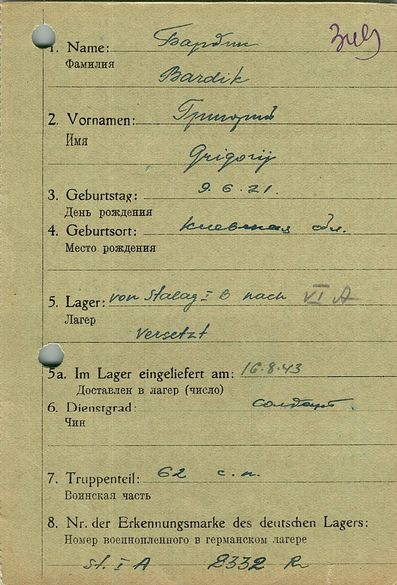 1. Name: Бардик
Фамилия
Bardik
2. Vornamen: Григорий
Имя
Grigorij
3. Geburtstag: 9.6.21.
День рождения
4. Geburtsort: Киевская обл.
Место рождения
5. Lager: von Stalag I B nach VI A
Лагерь
versetzt
5a. Im Lager eingeliefert am: 16.8.43
Доставлен в лагерь (число)
6. Dienstgrad: солдат
Чин
7. Truppenteil: 62 с.п.
Воинская часть
8. Nr. der Erkennungsmarke des deutschen Lagers:
Номер военнопленного в германском лагере
St. I A 2332